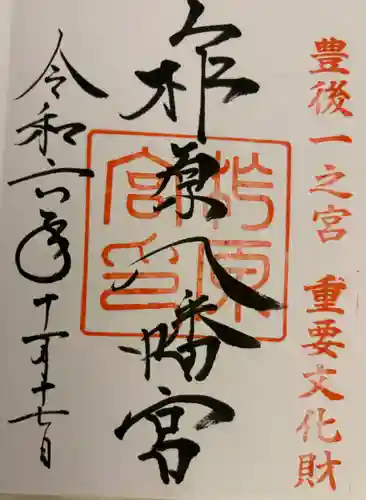 豊後一之宮　重要文化財
柞原八幡宮
柞原宮印
令和六年十一月十七日